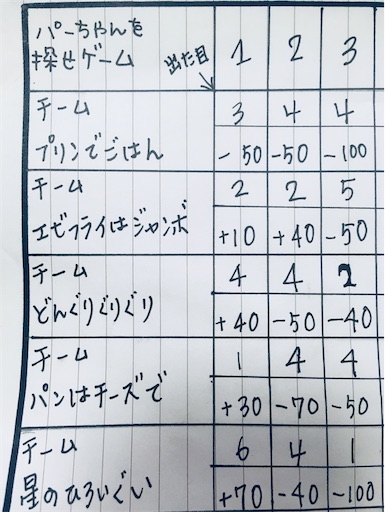 パーちゃんを
探せゲーム 出た目 1 2 3
チーム 3 4 4
プリンでごはん -50 -50 -100
チーム 2 2 5
エビフライはジャンボ +10 +40 -50
チーム 4 4 2
どんぐりぐりぐり +40 -50 -40
チーム 1 4 4
パンはチーズで +30 -70 -50
チーム 6 4 1
星のひろいぐい +70 -40 -100